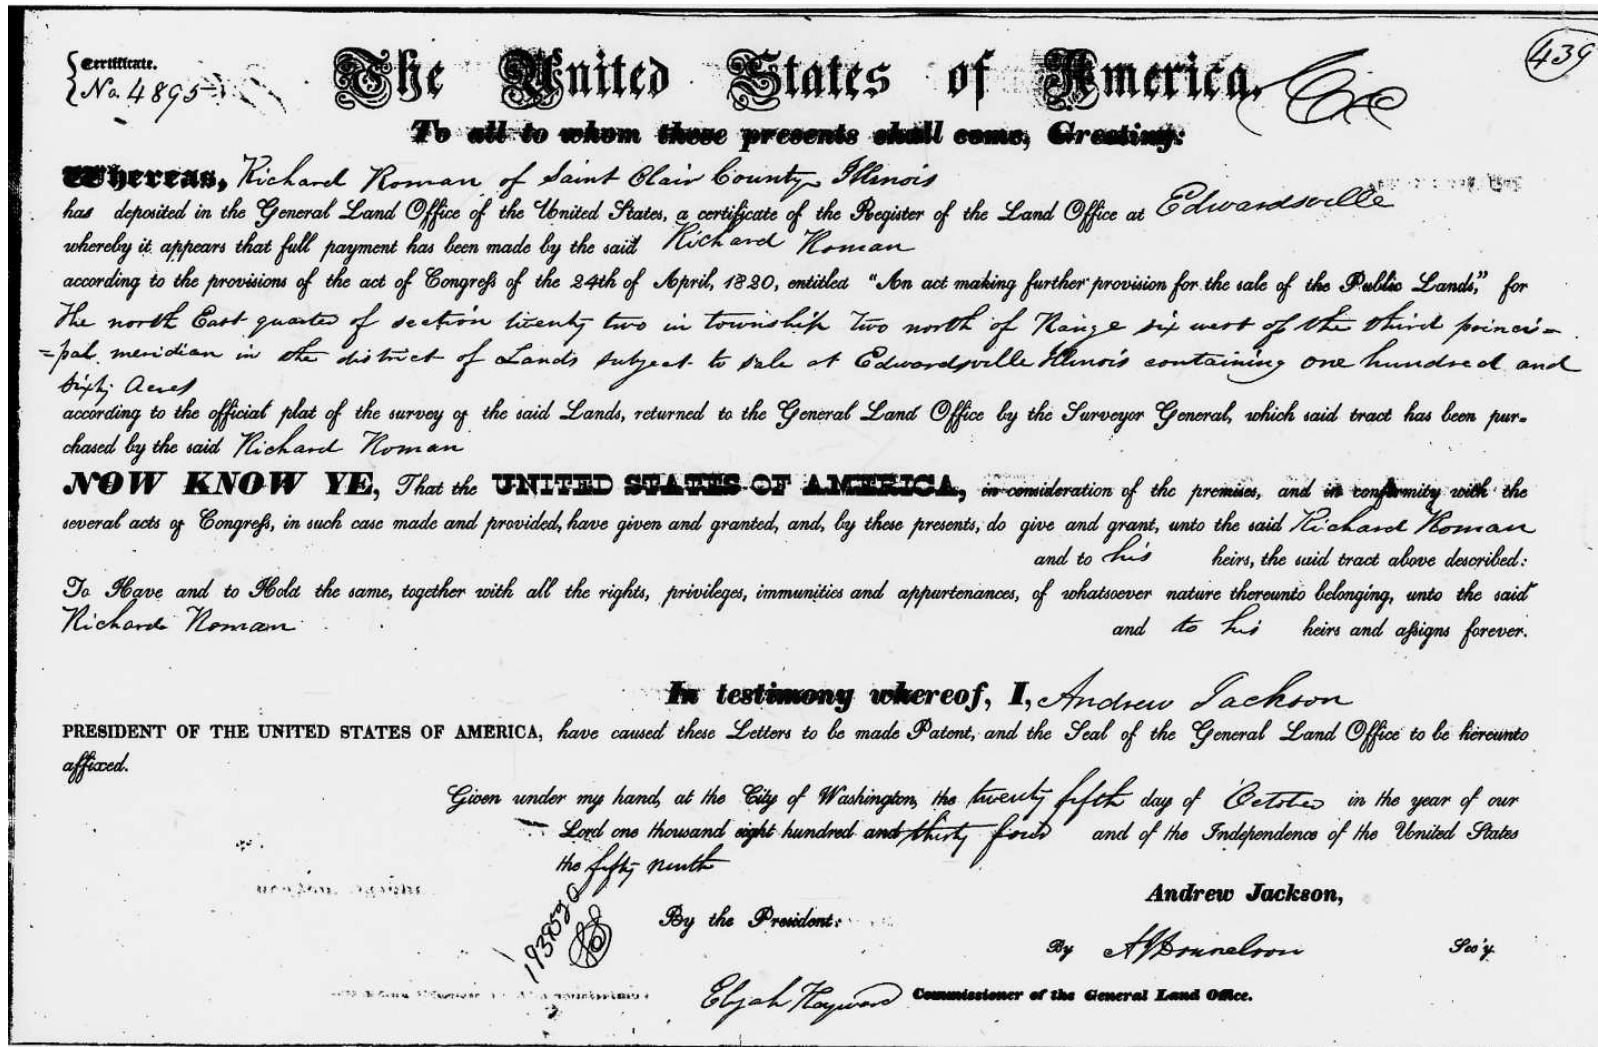 439
Certificate.
No. 4895
The United States of America.
To all to whom these presents shall come, Greeting:
Whereas, Richard Roman of Saint Clair County Illinois
has deposited in the General Land Office of the United States, a certificate of the Register of the Land Office at Edwardsville
whereby it appears that full payment has been made by the said Richard Roman
according to the provisions of the act of Congress of the 24th of April, 1820, entitled "An act making further provision for the sale of the Public Lands," for
The north East quarter of section twenty two in township two north of Range six west of the third princi=
=pal meridian in the district of Lands subject to sale at Edwardsville Illinois containing one hundred and
sixty Acres
according to the official plat of the survey of the said Lands, returned to the General Land Office by the Surveyor General, which said tract has been pur=
chased by the said Richard Roman
NOW KNOW YE, That the UNITED STATES OF AMERICA, in consideration of the premises, and in conformity with the
several acts of Congress, in such case made and provided, have given and granted, and, by these presents, do give and grant, unto the said Richard Roman
and to his heirs, the said tract above described:
To Have and to Hold the same, together with all the rights, privileges, immunities and appurtenances, of whatsoever nature thereunto belonging, unto the said
Richard Roman and to his heirs and assigns forever.
In testimony whereof, I, Andrew Jackson
PRESIDENT OF THE UNITED STATES OF AMERICA, have caused these Letters to be made Patent, and the Seal of the General Land Office to be hereunto
affixed.
Given under my hand, at the City of Washington, the twenty fifth day of October in the year of our
Lord one thousand eight hundred and thirty four and of the Independence of the United States
the fifty ninth
Andrew Jackson,
By the President:
By A J Donnelson Sec'y.
Elijah Hayward Commissioner of the General Land Office.